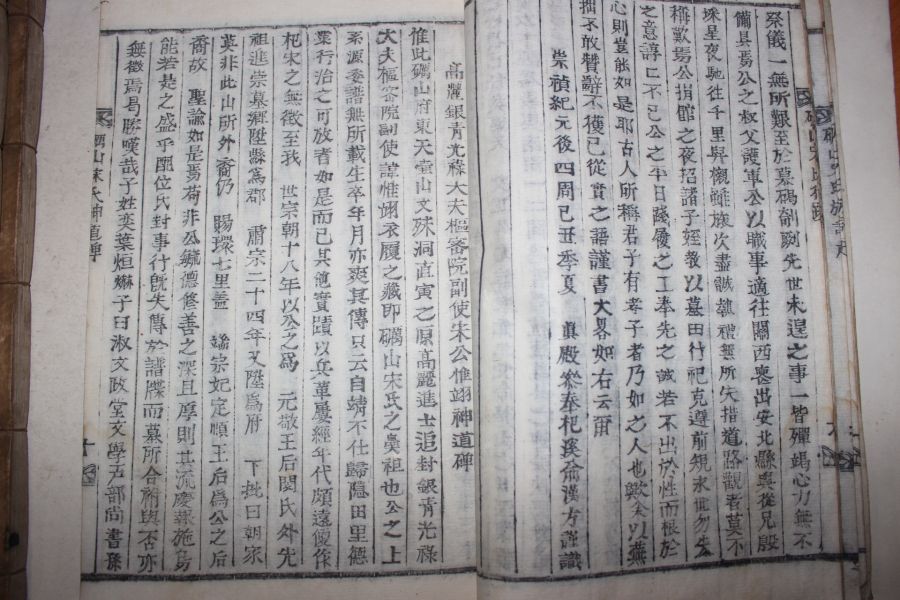 祭儀一無所艱至於墓碣剞劂先世未遑之事一皆殫竭心力無不
備具焉公之叔父護軍公以職事適往關西喪出安北縣與從兄殷
垛星夜馳往千里輿櫬雖旅次盡誠襲禮無所失措道路觀者莫不
稱歎焉公捐館之夜招諸子姪敎以墓田行祀克遵前規永世勿失
之意諄諄不已公之平日踐履之工奉先之誠若不出於性而根於
心則豈能如是耶古人所稱君子有孝子者乃如之人也歟余以蕪
拙不敢贊辭不獲已從實之語謹書大畧如右云爾
崇禎紀元後四周己丑季夏 眞殿叅奉杞溪兪漢方謹識
高麗銀靑光祿大夫樞密院副使宋公惟翊神道碑
惟此礪山府東天堂山文殊洞直寅之原高麗進士追封銀靑光祿
大夫樞密院副使諱惟翊衣履之藏卽礪山宋氏之鼻祖也公之上
系源委譜無所載生卒年月亦爽其傳只云自靖不仕歸隱田里德
業行治之可放者如是而已其他實蹟以兵革屢經年代頗遠便作
杞宋之無徵至我 世宗朝十八年以公之爲 元敬王后閔氏外先
祖進崇墓鄕陞縣爲郡 肅宗二十四年又陞爲府 下批曰朝家
莫非此山所外裔仍 賜環七里蓋 端宗妃定順王后爲公之后
裔故 聖諭如是焉荷非公毓德修善之深且厚則其流慶報施烏
能若是之盛乎配位氏封事行旣失傳於譜牒而墓所合祔與否亦
無徵焉曷勝嘆哉子姓奕葉烜爀子曰淑文政堂文學五部尙書祿
礪山宋氏神道碑